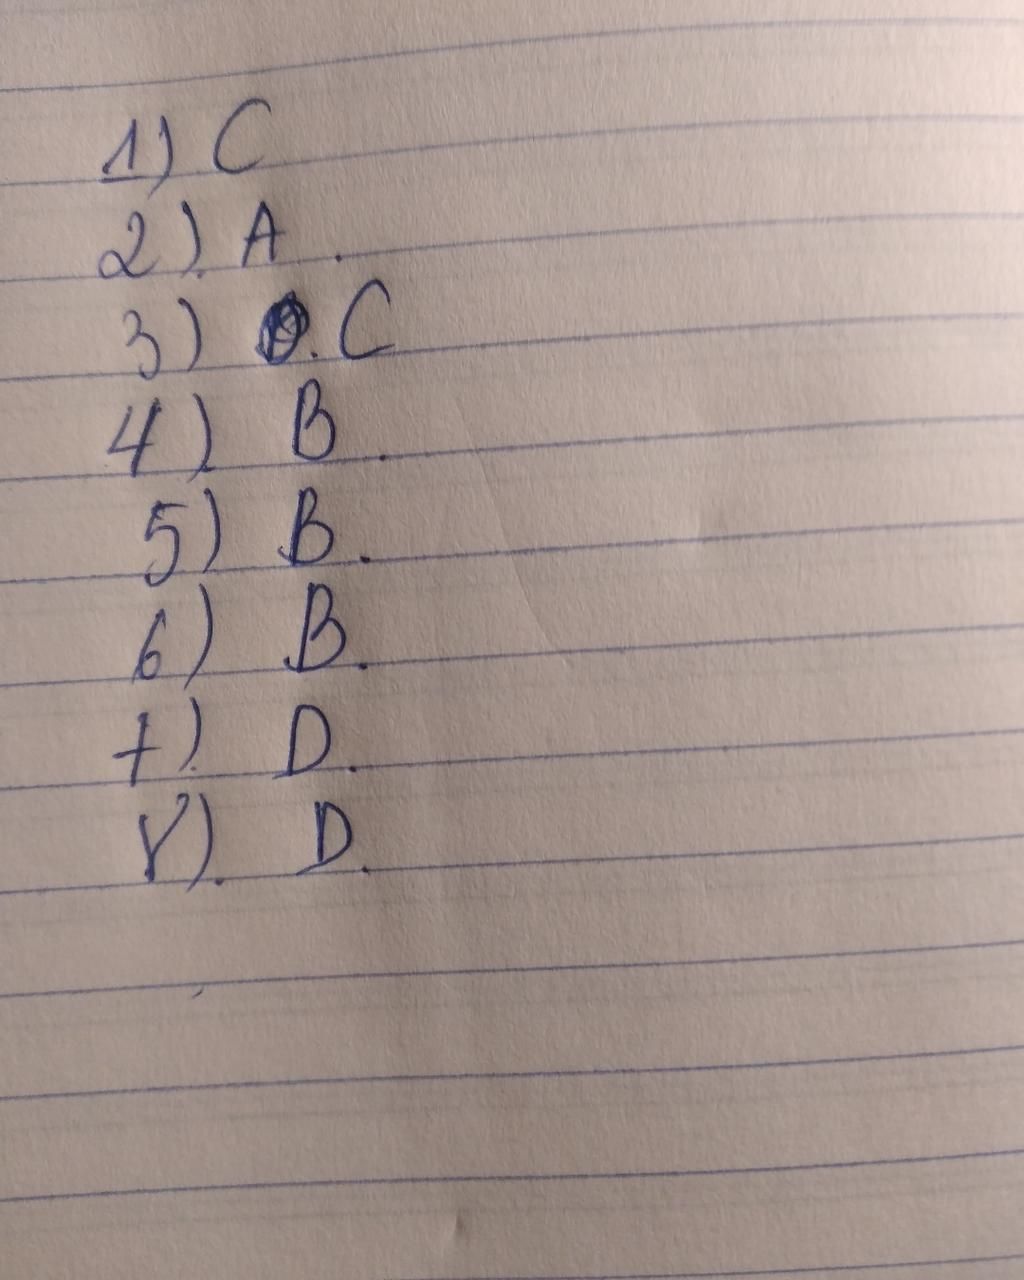 1) C
2). A .
3) . C
4) B .
5) B.
6) B.
7). D.
8). D.